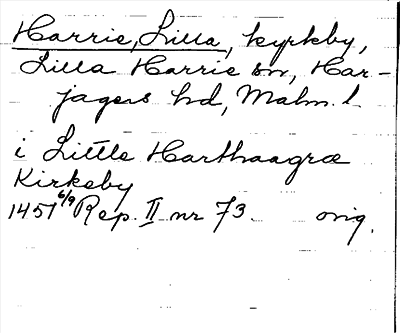 Harrie, Lilla, kyrkby,
Lilla Harrie sn, Har-
jagers hd, Malm. l.
i Little Harthaagræ
Kirkeby
1451 6/9 Rep. II nr 73. orig.